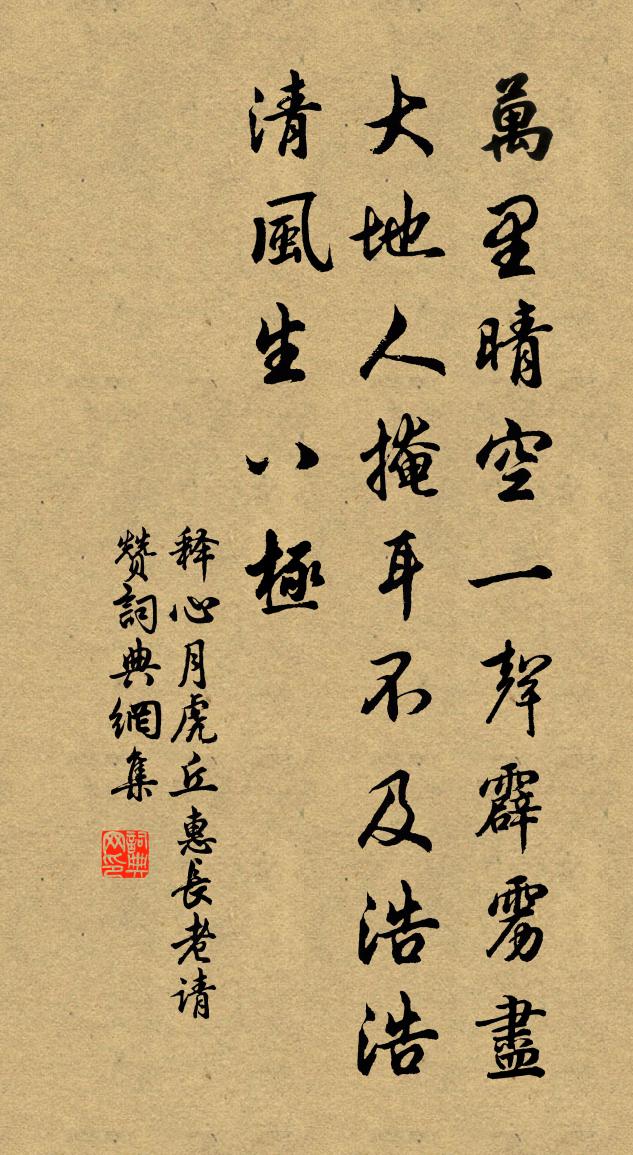 萬里晴空一聲霹雳盡
大地人掩耳不及浩浩
清風生八極
释心月虎丘惠長老请
赞詞典網集
詞典网印